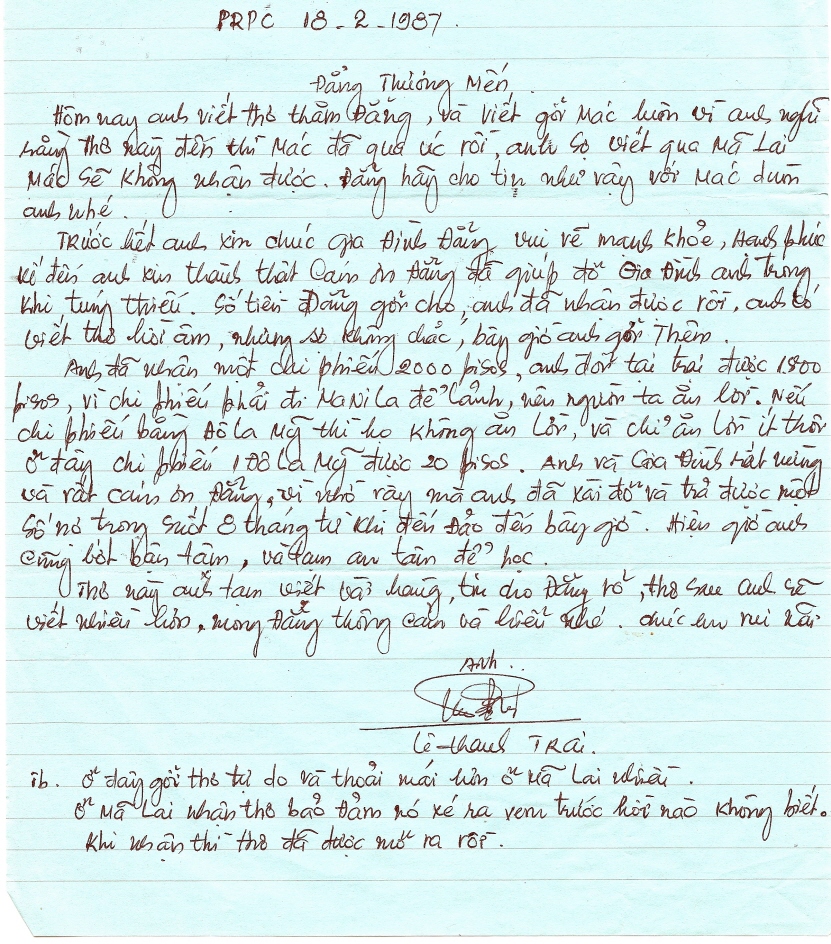 PRPC 18-2-1987.
Đẳng Thương Mến,
Hôm nay anh viết thơ thăm Đẳng, và viết gởi Mác luôn vì anh nghĩ
rằng thơ nầy đến thì Mác đã qua Úc rồi, anh sợ viết qua Mã Lai
Mác sẽ không nhận được. Đẳng hãy cho tin như vậy với Mác dùm
anh nhé.
Trước hết anh xin chúc gia Đình Đẳng vui vẽ mạnh khỏe, Hạnh phúc
kế đến anh xin thành thật Cám ơn Đẳng đã giúp đở Gia Đình anh trong
khi túng thiếu. Số tiền Đẳng gởi cho, anh đã nhận được rồi, anh có
viết thơ hồi âm, nhưng sợ không chắc, bây giờ anh gởi Thêm.
Anh đã nhận một chi phiếu 2000 pisos, anh đổi tại trại được 1800
pisos, vì chi phiếu phải đi Manila để lảnh, nên người ta ăn lời. Nếu
chi phiếu bằng Đô la Mỹ thì họ không ăn lời, và chỉ ăn lời ít thôi
ở đây chi phiếu 1 Đô la Mỹ được 20 pisos. Anh và Gia Đình rất mừng
và rất cám ơn Đẳng, vì nhờ vậy mà anh đã xài đở và trả được một
số nợ trong suốt 8 tháng từ khi đến Đảo đến bây giờ. Hiện giờ anh
cũng bớt bận tâm, và tạm an tâm để học.
Thơ nầy anh tạm viết vài hàng, tin cho Đẳng rõ, thơ sau anh sẽ
viết nhiều hơn, mong Đẳng thông cảm và hiểu nhé. chúc em vui
Anh..
Lê-thanh TRAI.
Tb. Ở đây gởi thơ tự do và thoải mái hơn ở Mã Lai nhiều.
Ở Mã Lai nhận thơ bảo đảm nó xé ra xem trước hồi nào không biết.
Khi nhận thì thơ đã được mở ra rồi.